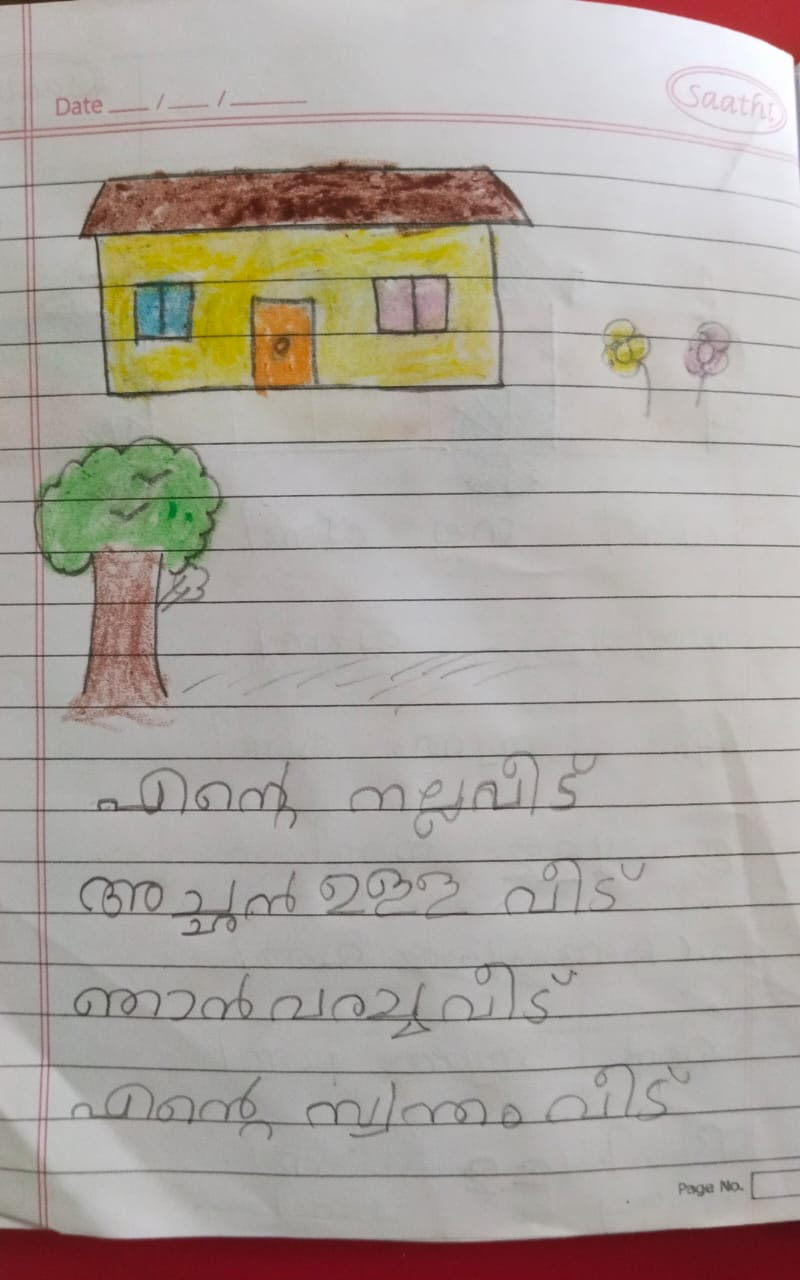 Date __ / __ / ____
Saathi
എന്റെ നല്ലവീട്
അച്ചൻ ഉള്ള വീട്
ഞാൻ വരച്ചവീട്
എന്റെ സ്വന്തം വീട്
Page No.